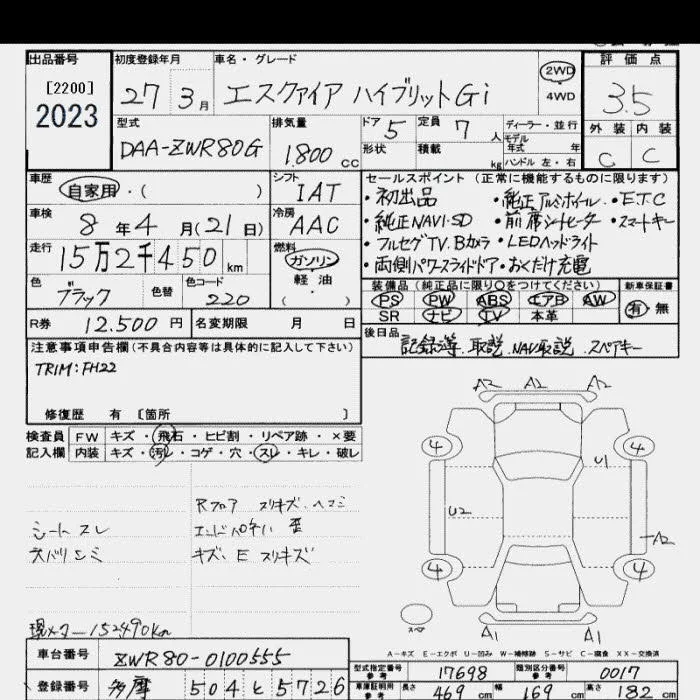 出品番号 初度登録年月 車名・グレード 評価点
[2200] 2023
27 3月 エスクァイア ハイブリットGi 2WD 4WD 3.5
型式 排気量 ドア 5 定員 7人 ディーラー・並行 外装 内装
DAA-ZWR80G 1.800cc 形状 積載 kg モデル年式 年 ハンドル 左・右 C C
車歴 シフト セールスポイント(正常に機能するものに限ります)
自家用・( ) IAT ・初出品 ・純正アルミホイール ・ETC
車検 8年4月(21日) 冷房 AAC ・純正NAVI・SD ・前席シートヒーター ・スマートキー
走行 15万2千450km 燃料 ・フルセグTV.Bカメラ ・LEDヘッドライト
ガソリン 軽油 ( ) ・両側パワースライドドア ・おくだけ充電
色 ブラック 色替 色コード 220 装備品(純正品に限り○をつけてください) 新車保証書
PS PW ABS エアB AW 有・無
R券 12.500円 名変期限 月 日 SR ナビ TV 本革
注意事項申告欄(不具合内容等は具体的に記入して下さい) 後日品
記録簿.取説.NAV取説.スペアキー
TRIM:FH22
修復歴 有 [箇所 ]
検査員 FW キズ・飛石・ヒビ割・リペア跡・×要
記入欄 内装 キズ・汚レ・コゲ・穴・スレ・キレ・破レ
A2 A2 A2
4 4
U1
U2
A2
4 4
A1 A1
スペア
Rフロア スリキズ.ヘコミ
シートスレ
天バリシミ キズ、E スリキズ
現メーター152490km
A-キズ E-エクボ U-凹み W-補修跡 S-サビ C-腐食 XX-交換済
車台番号 ZWR80-0100555
型式指定番号 参考 17698 類別区分番号 参考 0017
登録番号 多摩 504 と 5726
車庫証明用 参考 長さ 469cm 幅 169cm 高さ 182cm